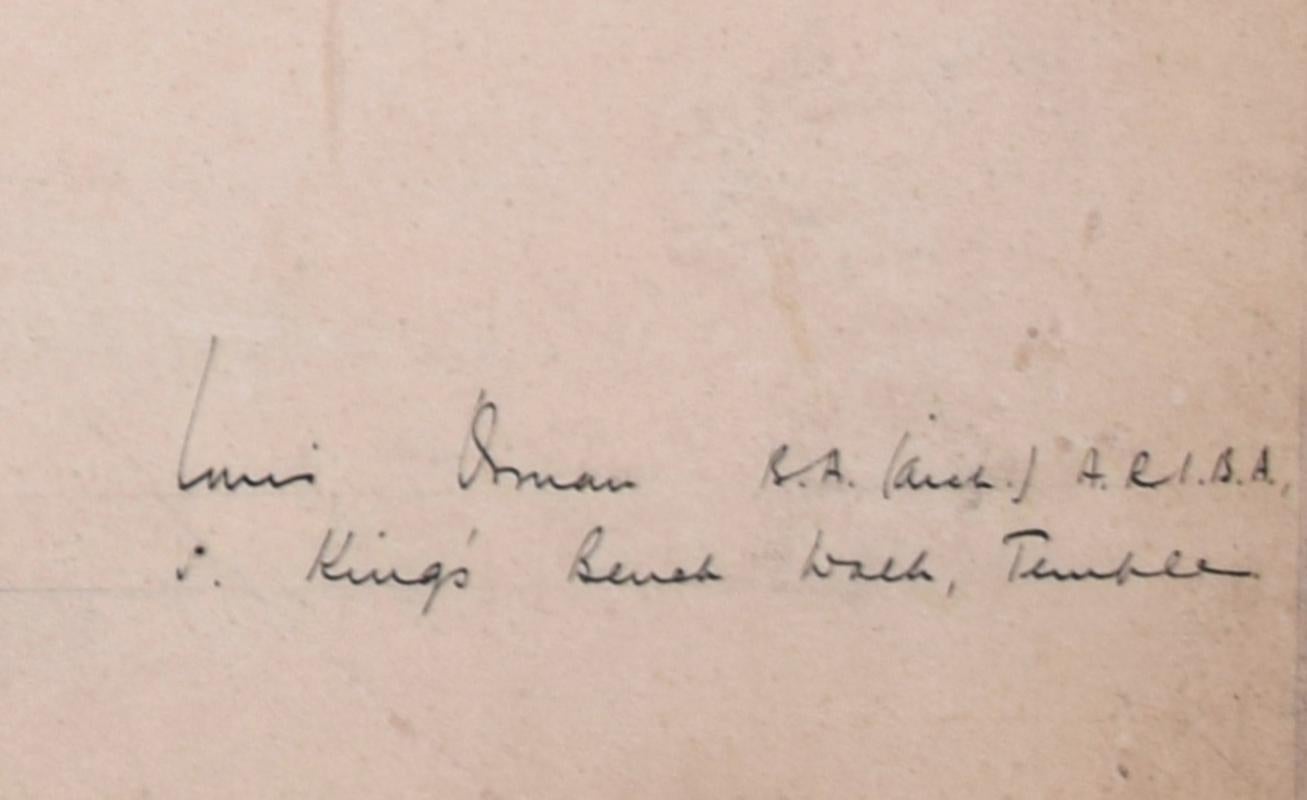 Louis Osman B.A. (Arch.) A.R.I.B.A.,
King's Bench Walk, Temple